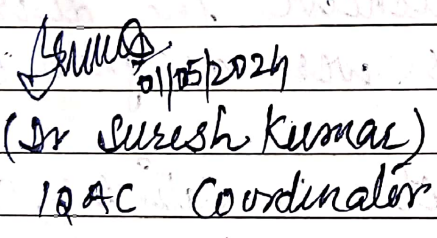 01/05/2024
(Dr Suresh Kumar)
IQAC Coordinator